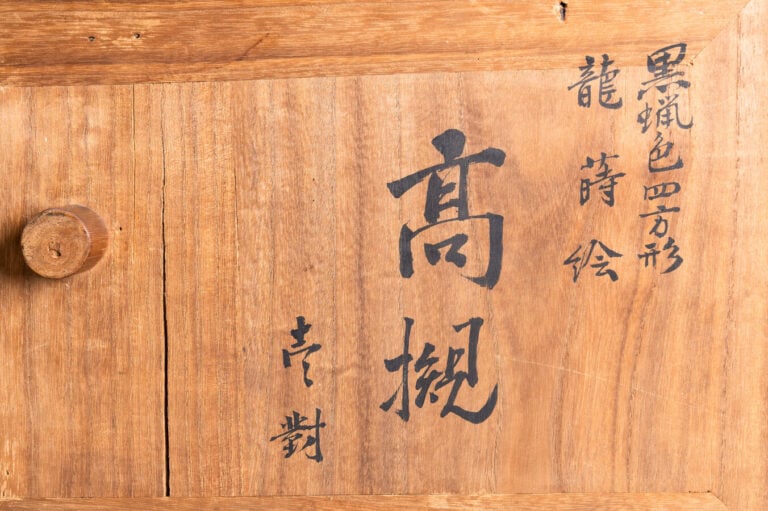 黒蝋色四方形
龍蒔絵
髙槻
壱對